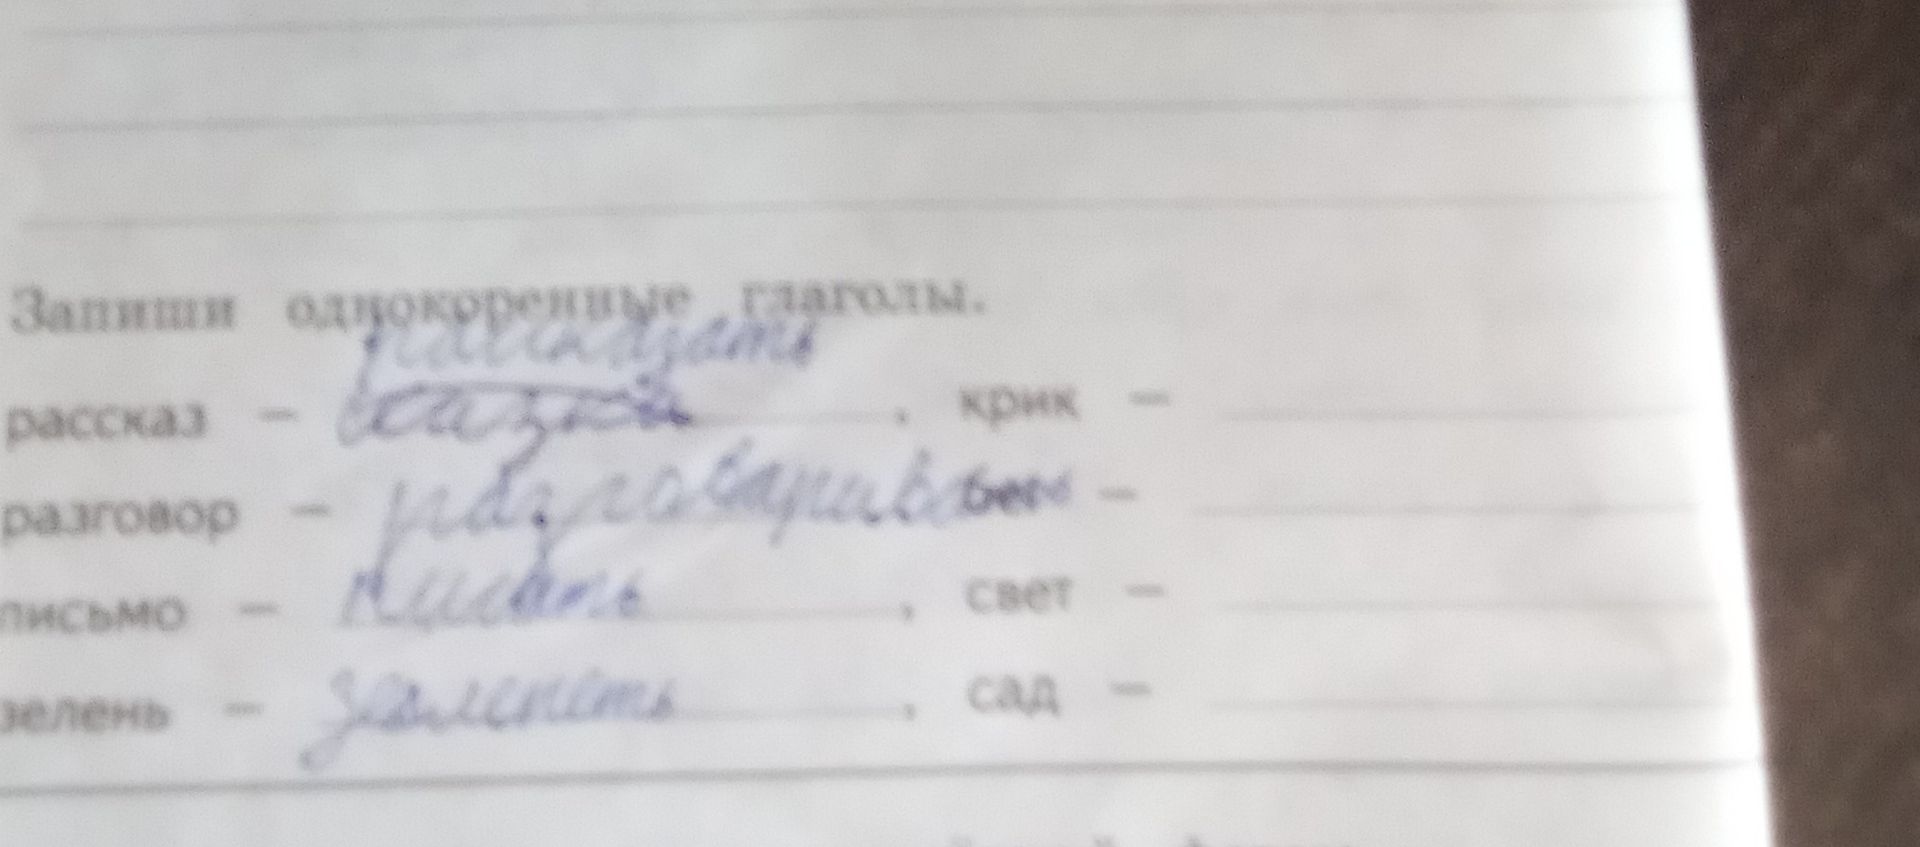 Запиши однокоренные глаголы.
рассказать
рассказ – , крик –
разговор – разговаривать бег –
письмо – Писать , свет –
зелень – зеленеть , сад –